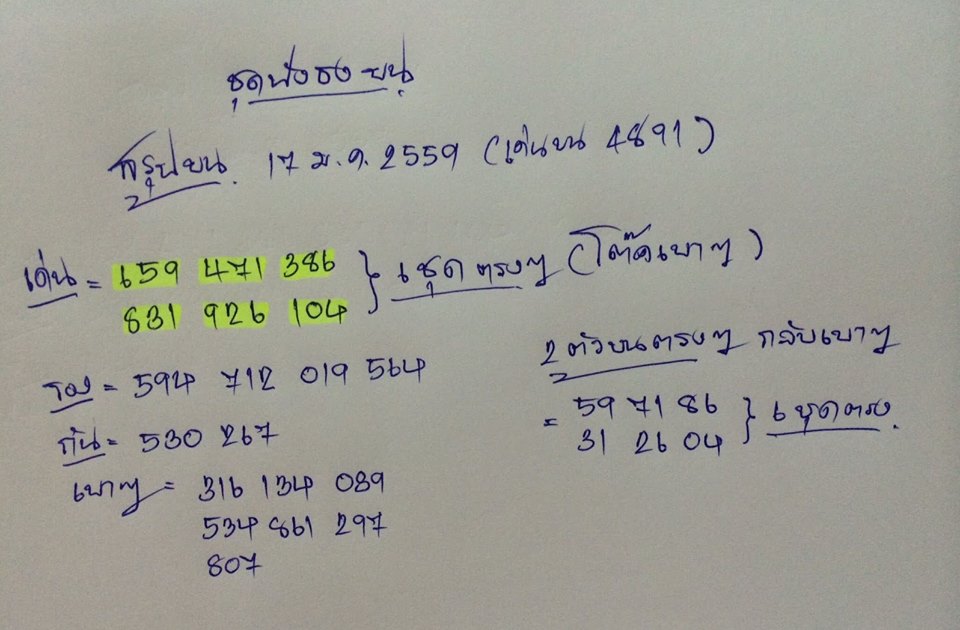 ชุดฟังธง บน
สรุปบน 17 ม.ค. 2559 (เด่นบน 4891)
เด่น = 659 471 386 } 6 ชุดตรงๆ (โต๊ดเบาๆ)
831 926 104
รอง = 594 712 019 564
กัน = 530 267
เบาๆ = 316 134 089
534 861 297
807
2 ตัวบนตรงๆ กลับเบาๆ
= 59 71 86 } 6 ชุดตรง.
31 26 04